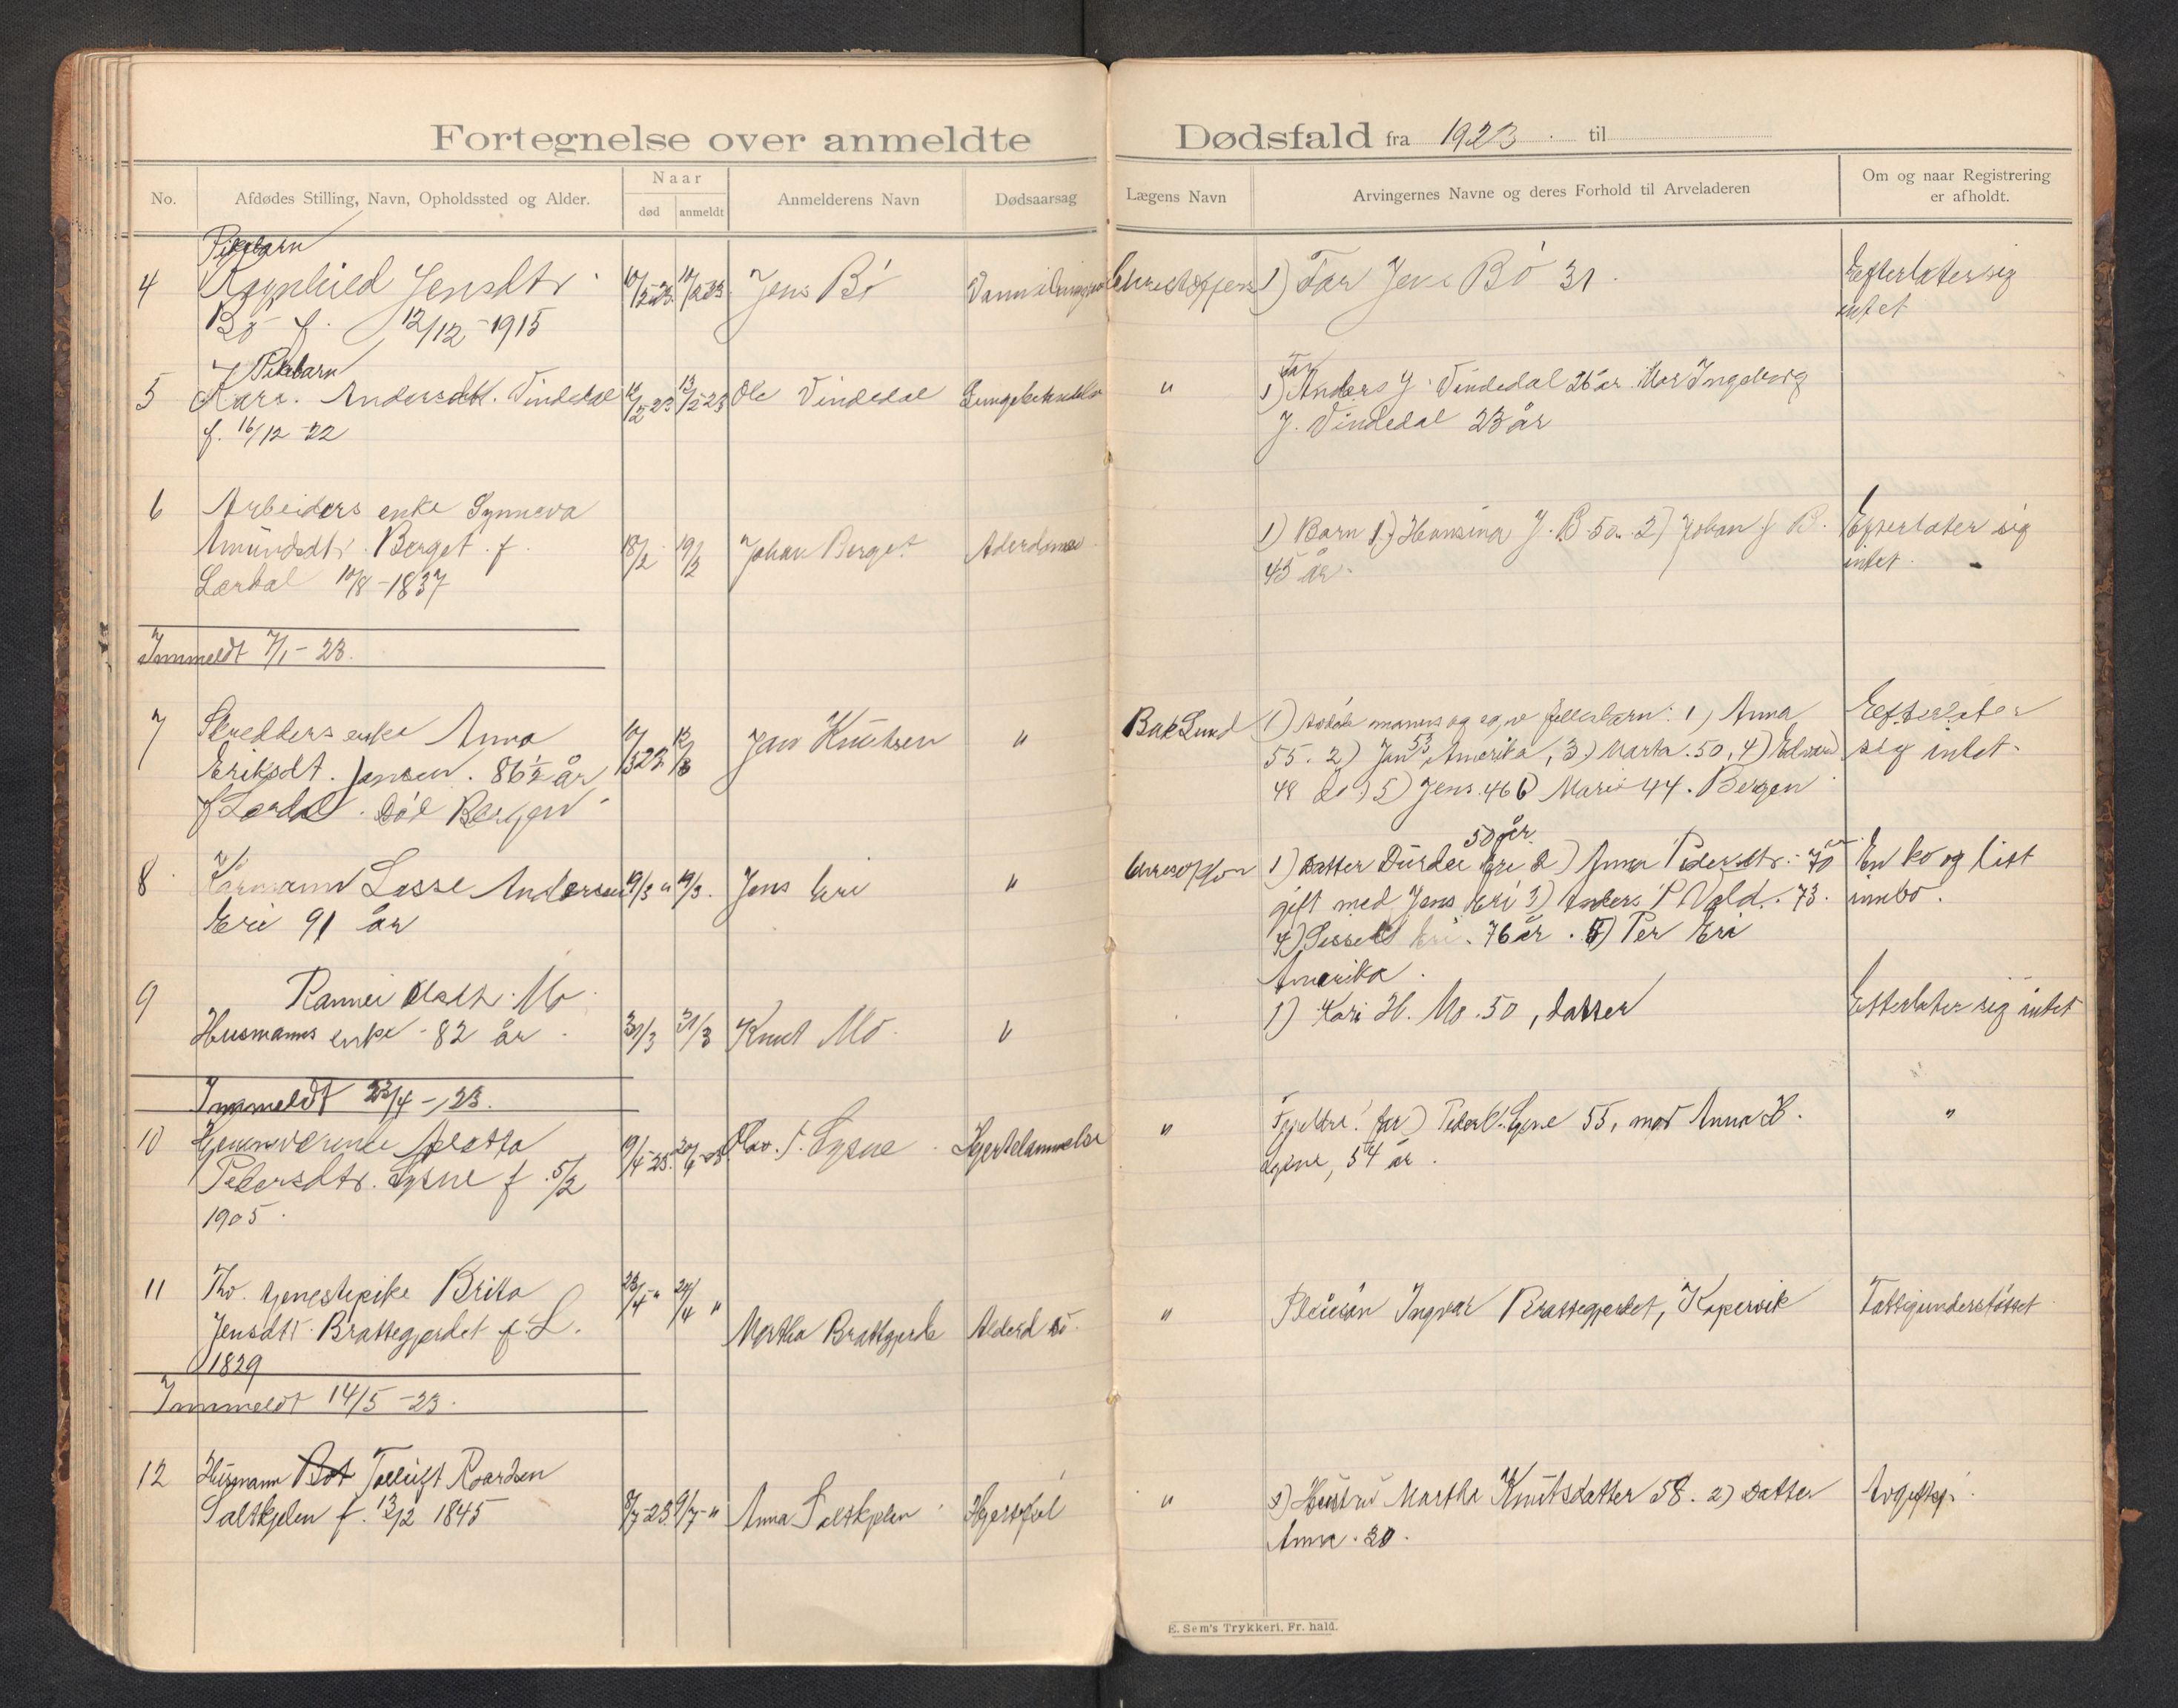 Fortegnelse over anmeldte Dødsfald fra 1923 til
No. Afdødes Stilling, Navn, Opholdssted og Alder. Naar død anmeldt Anmelderens Navn Dødsaarsag Lægens Navn Arvingernes Navne og deres Forhold til Arveladeren Om og naar Registrering er afholdt.
Pikebarn
4 Ragnhild Jensdtr Jens Bö 1) Far Jens Bö 31. Efterlater sig
Bö f. 12/12-1915 intet
Pikebarn
5 Kari Andersdt. Vindedal 12/2-23 13/2-23 Ole Vindedal " Far
1) Anders J. Vindedal 26 år Mor Ingeborg
f. 16/12-22 J. Vindedal 23 år
6 Arbeiders enke Synneva
Amundsdtr. Berget f. 18/2 19/2 Johan Berget 1) Barn 1) Hansina J. B. 50. 2) Johan J. B. Efterlater sig
Lærdal 10/8-1837 45 år. intet
Innmeldt 7/1-23.
7 Skredders enke Anna Jan Knutsen " Bak Lund 1) Avdöde manns og egne fellesbarn: 1) Anna Efterlater
Eriksdt. Jensen. 86½ år 55. 2) Jan 53 Amerika, 3) Marta. 50, 4) Edvard sig intet.
f Lærdal. Död Bergen 48 år 5) Jens. 46 6) Marie 44. Bergen
50 år
8 Kårmann Lasse Andersen 19/3 " 19/3. Jens Eri " 1) Datter Durdei Eri 2) Anna Pedersdtr. 70 En ko og litt
Eri 91 år gift med Jens Eri 3) Anders P Vold. 73. innbo.
4) Sissel Eri. 76 år. 5) Per Eri
Amerika.
9 Rannei Olsdtr. Mo
Husmanns enke - 82 år 31/3 Knut Mo " 1) Kari H. Mo. 50, datter Efterlater sig intet
Innmeldt 23/4-23.
10 Hjemmeværende 19/4-23. Olav. P. Lysne Hjertelammelse " Foreldre: far) Peder L. Lysne 55, mor Anna H. "
Pedersdtr. Lysne f. 5/2 Lysne, 54 år.
1905.
11 Fhv. tjenestepike Brita 23/4 " 24/4 " " Pleiesön Ingvar Brattegjerdet, Kopervik Fattigunderstöttet
Jensdtr. Brattegjerdet f. L. Martha Brattgjerde Alderd
1829
Innmeldt 14/5-23.
12 Husmann Bot Tolleif Roardsen " 1) Hustru Martha Knutsdatter 58. 2) Datter
Saltkjelen f. 13/12 1845 8/7-23. 9/7-" Anna Saltkjelen Hjertefeil Anna. 20.
E. Sem's Trykkeri, Fr. hald.